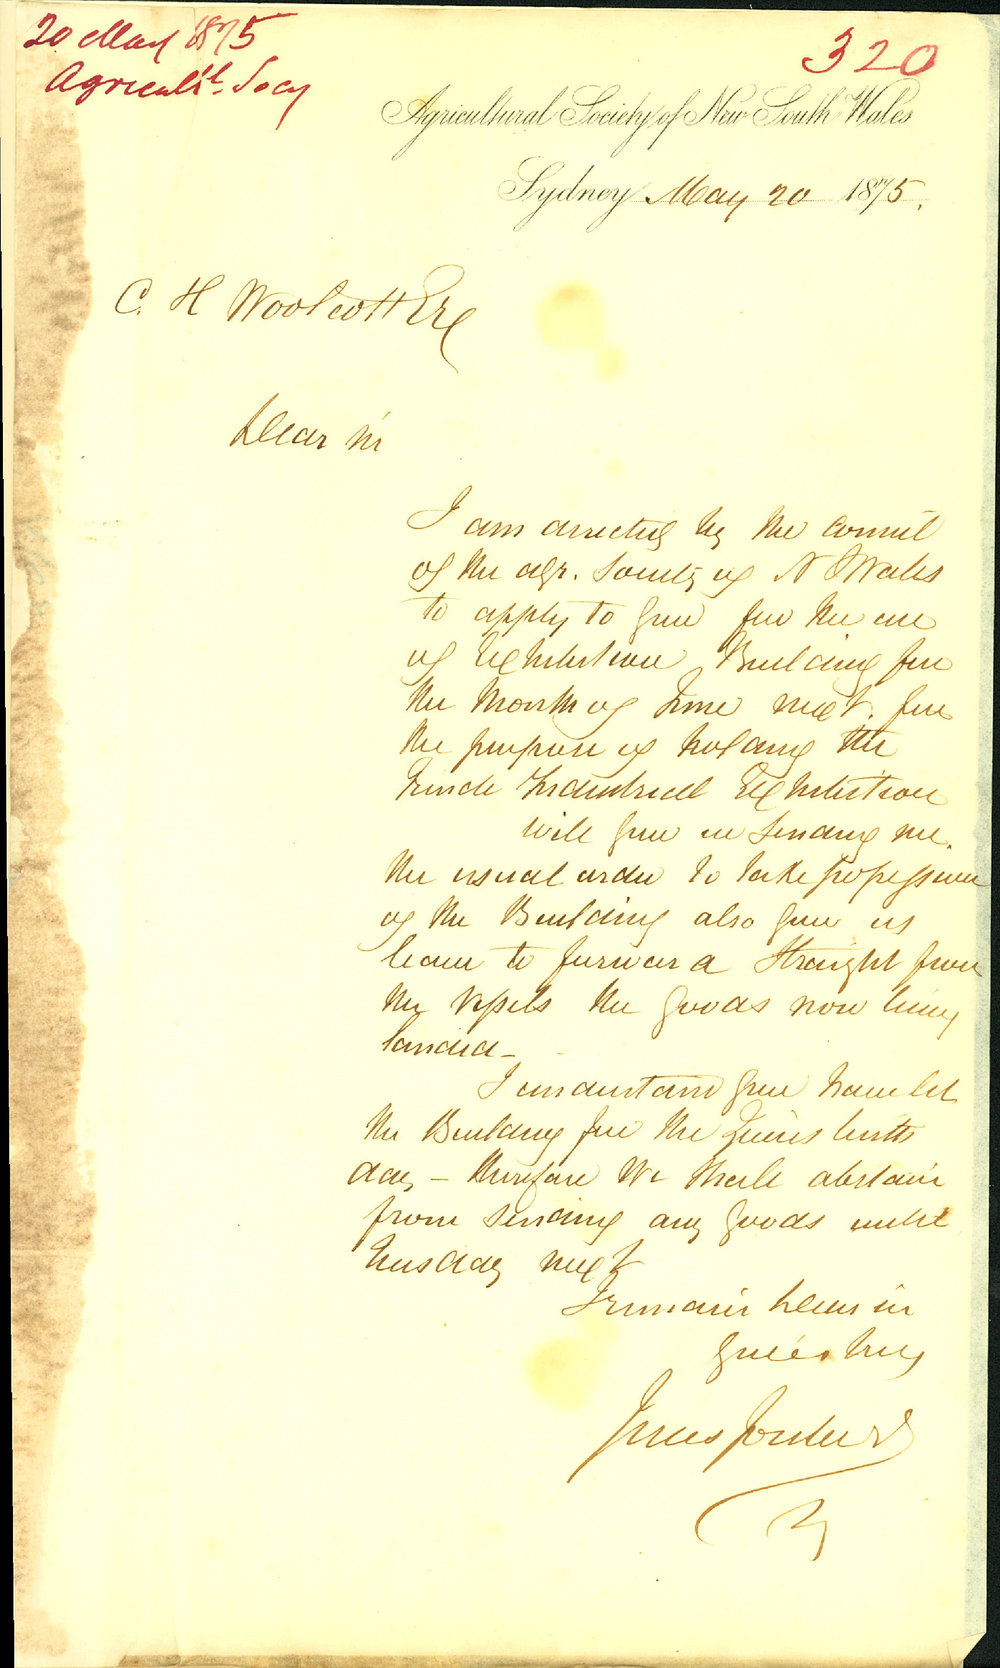 20 May 1875
Agricult'l. Socy
320
Agricultural Society of New South Wales
Sydney May 20 1875.
C. H Woolcott Esq
Dear Sir
I am directed by the Council
of the Agr. Society of N S Wales
to apply to you for the use
of Exhibition Building for
the Month of June next. for
the purpose of holding the
Industrial Exhibition
will you in sending me.
the usual order to take possession
of the Building also give us
leave to forward straight from
the vessels the goods now being
landed -
I understand you have let
the Building for the Queens birth
day - therefore We shall abstain
from sending any goods until
Tuesday next
I remain Dear Sir
Yours truly
Jules Joubert